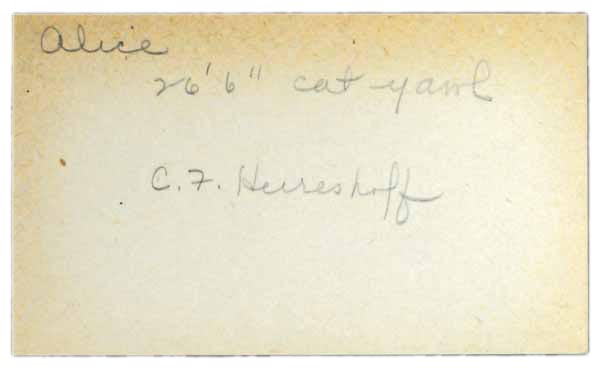 Alice
26'6" cat-yawl
C.F. Herreshoff